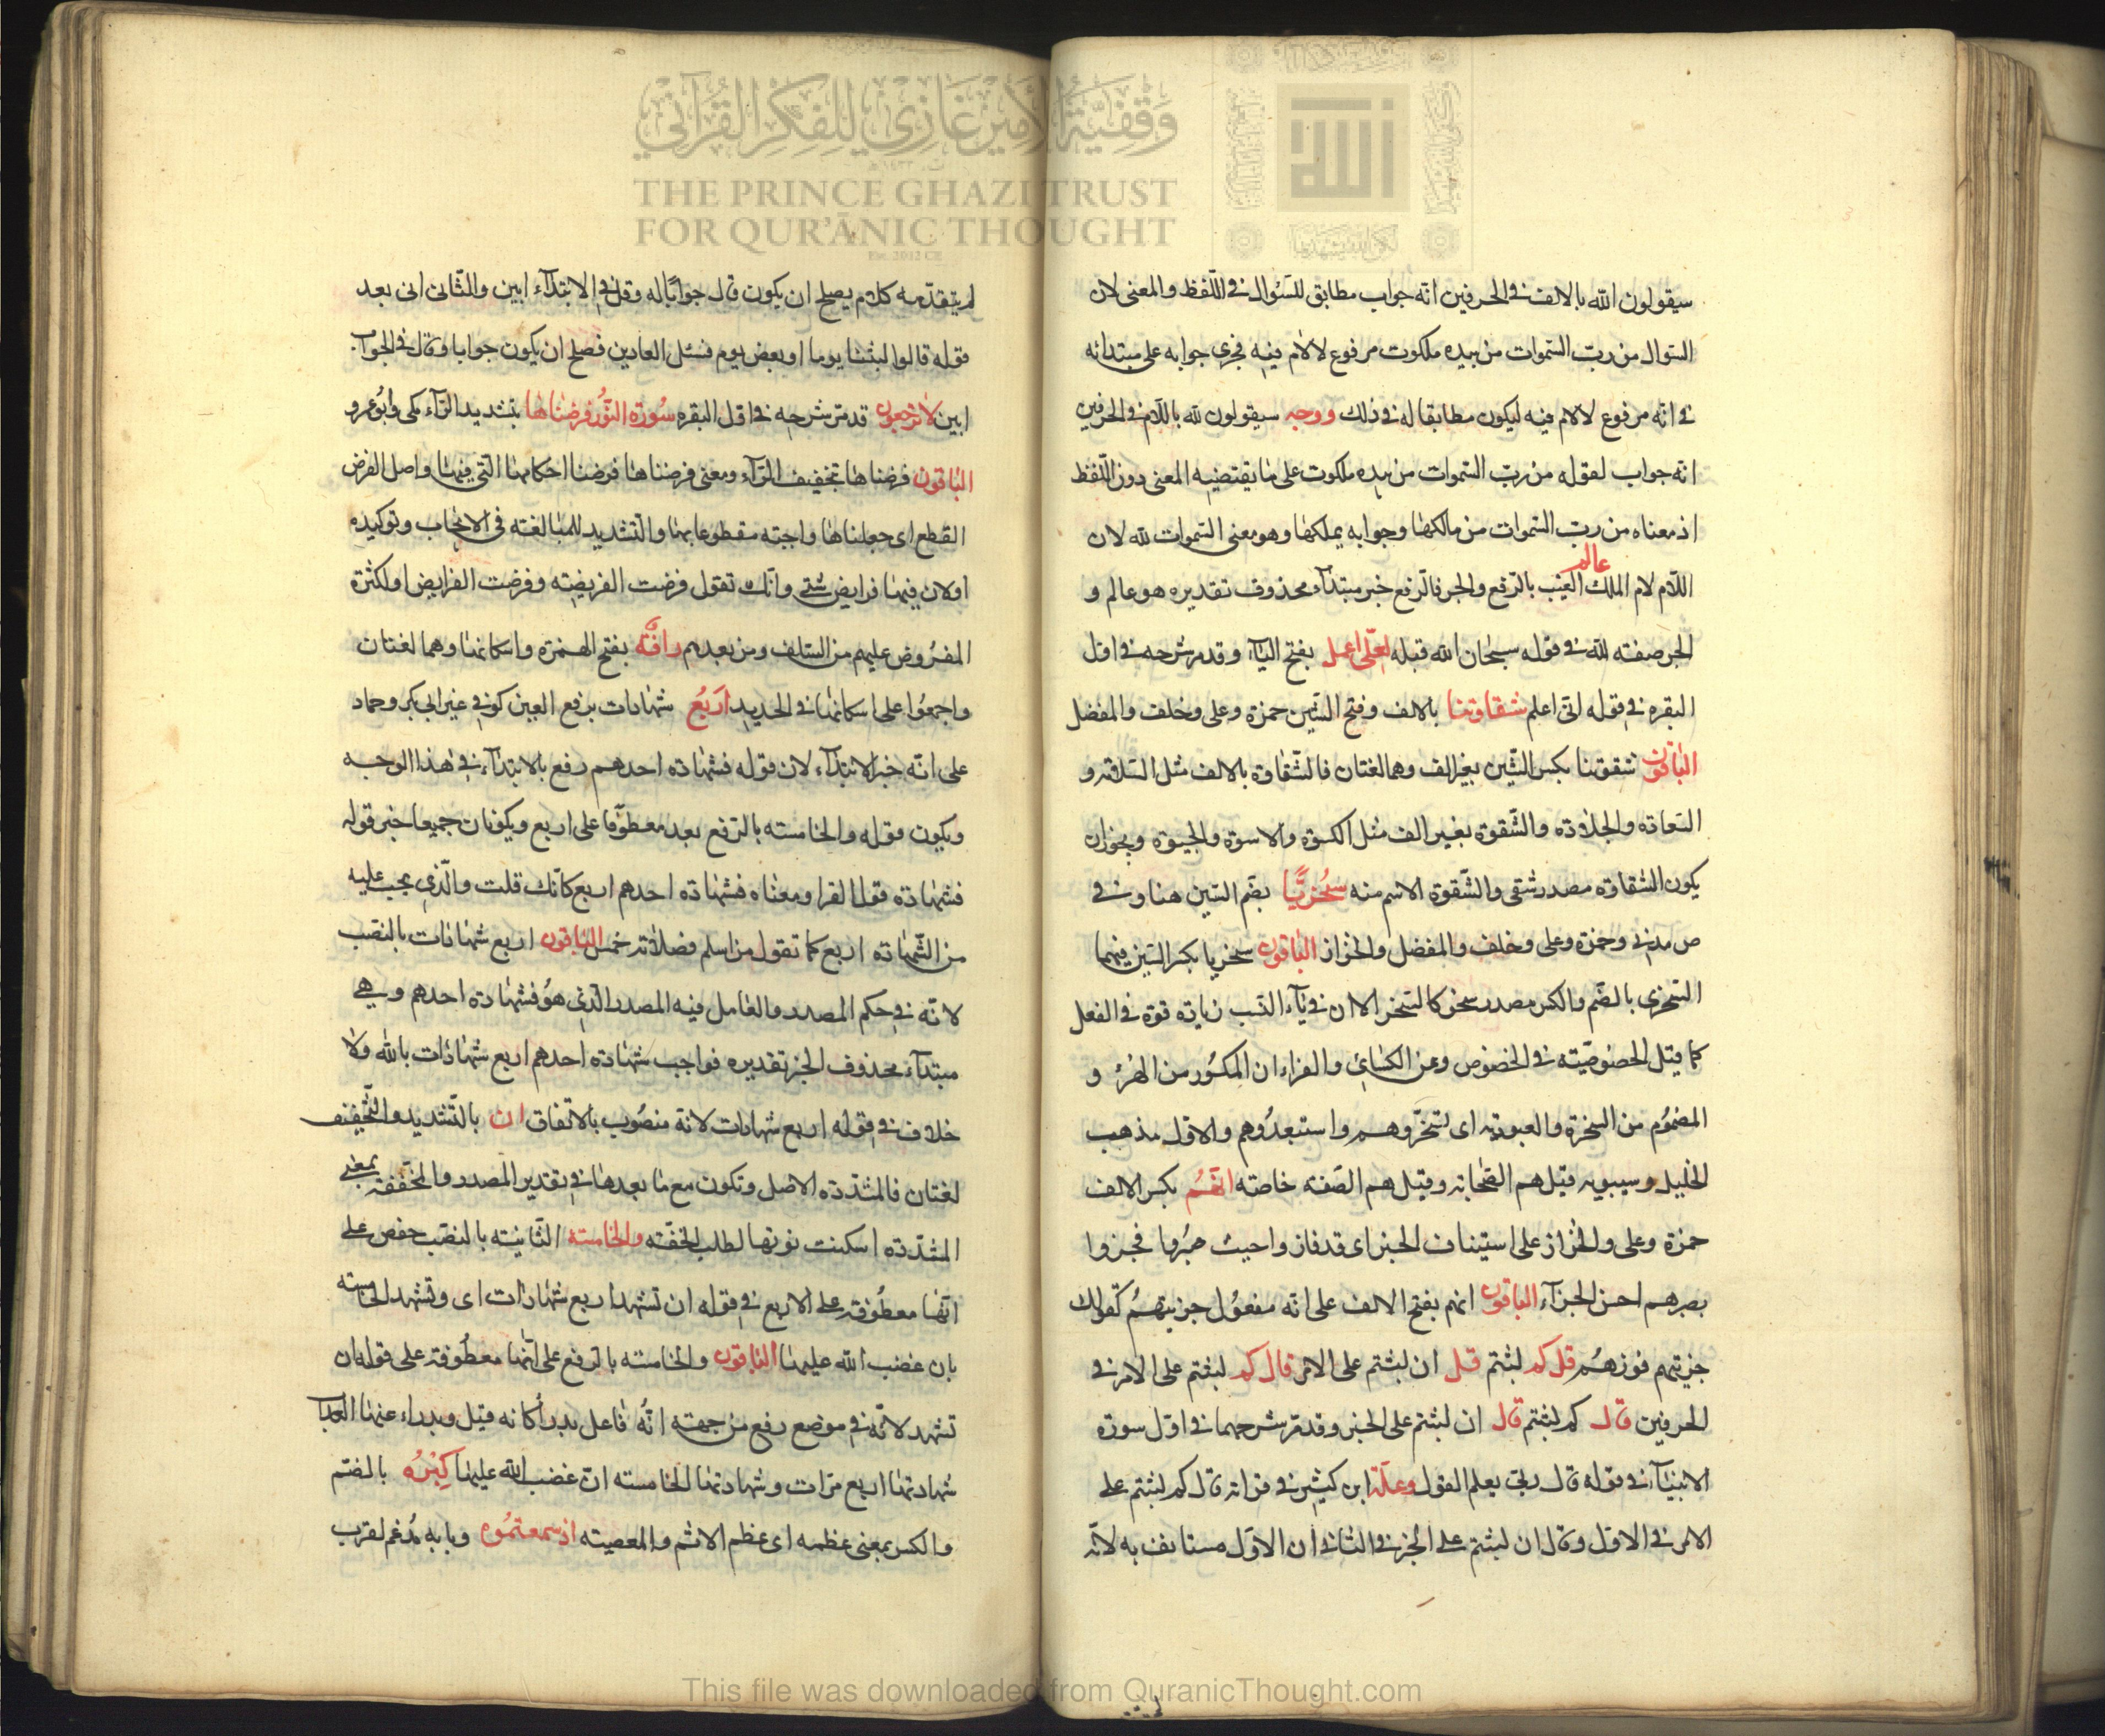 وقفية الأمير غازي للفكر القرآني
THE PRINCE GHAZI TRUST
FOR QUR'ĀNIC THOUGHT
Est. 2012 CE
سيقولون الله بالالف في الحرفين انه جواب مطابق للسؤال في اللفظ والمعنى لان
السؤال من ربّ السموات من بيده ملكوت مرفوع لا لام فيه فجرى جوابه على مبتدائه
في انه مرفوع لا لام فيه ليكون مطابقا له في ذلك ووجه سيقولون لله باللام في الحرفين
انه جواب لقوله من ربّ السموات من بيده ملكوت على ما يقتضيه المعنى دون اللفظ
اذ معناه من ربّ السموات من مالكها وجوابه يملكها وهو معنى السموات لله لان
اللام لام الملك عالم الغيب بالرفع والجر فالرفع خبر مبتداء محذوف تقديره هو عالم و
الجر صفته لله في قوله سبحان الله قبله لعلّى اعمل بفتح الياء وقد مر شرحه في اول
البقره في قوله انّى اعلم شقاوتنا بالالف وفتح الشين حمزة وعلى وخلف والمفضل
الباقون شقوتنا بكسر الشين بغير الف وهما لغتان فالشقاوة بالالف مثل السلامة و
السعادة والجلادة والشقوة بغير الف مثل الكسوة والاسوة والجبوة ويجوز ان
يكون الشقاوة مصدر شقى والشقوة الاسم منه سُخريًّا بضم السين هنا وفي
ص مدني وحمزة وعلى وخلف والمفضل والخزاز الباقون سخريا بكسر السين فيهما
السخرى بالضم والكسر مصدر سخر كالسخر الا ان في ياء النسب زيادة قوة في الفعل
كما قيل الخصوصيّته في الخصوص وعن الكسائي والفراء ان المكسور من الهزء و
المضموم من السخرة والعبودية اى تسخّروهم واستبعدُوهم والاول مذهب
الخليل وسيبويه قيل هم الصّحابة وقيل هم الصّفة خاصّته انّهم بكسر الالف
حمزة وعلى والخزاز على استيناف الخبر اى قد فازوا حيث صبرُوا فجزوا
بصبرهم احسن الجزاء الباقون انهم بفتح الالف على انه مفعول جزيتهم كقولك
جزيتهم فوزهم قل كم لبثتم قل ان لبثتم على الامر قال كم لبثتم على الامر في
الحرفين قال كم لبثتم قال ان لبثتم على الخبر وقد مرّ شرحهما في اول سورة
الانبياء في قوله قال ربّى يعلم القول وعلّة ابن كثير في قراته قال كم لبثتم على
الامر في الاول وقال ان لبثتم على الخبر في الثاني ان الاوّل مستانف به لانّه
لم يتقدّمه كلام يصلح ان يكون قال جوابًا له وقل في الابتداء ابين والثانى اتى بعد
قوله قالوا لبثنا يوما او بعض يوم فسئل العادين فصلح ان يكون جوابا وقال في الجواب
ابين لا ترجعون قد مر شرحه في اول البقره سُورة النُّور فرضناها بتشديد الراء مكى وابُو عمرو
الباقون فرضناها تخفيف الراء ومعنى فرضناها فرضنا احكامها التي فيها واصل الفرض
القطع اى جعلناها واجبته مقطوعا بها والتشديد للمبالغته في الايجاب وتوكيده
اولان فيها فرايض شتى وانّك تقول فرضت الفريضته وفرضت الفرايض او لكثرة
المفرُوض عليهم من السلف ومن بعدهم رافة بفتح الهمزة واسكانها وهما لغتان
واجمعُوا على اسكانها في الحديد اربَعُ شهادات برفع العين كوفي غير ابى بكر وحماد
على انّه خبر الابتداء لان قوله فشهادة احدهم رفع بالابتداء في هذا الوجه
ويكون قوله والخامسته بالرفع بعد معطوفا على اربع ويكونان جميعا خبر قوله
فشهادة قوله الفرا ومعناه فشهادة احدهم اربع كانّك قلت والذى يجب عليه
من الشّهادة اربع كما تقول من اسلم فصلاته خمس الباقون اربع شهادات بالنصب
لانّه في حكم المصدر والعامل فيه المصدر الذي هو فشهادة احدهم وهي
مبتداء محذوف الخبر تقديره فواجب شهادة احدهم اربع شهادات بالله ولا
خلاف في قوله اربع شهادات لانه منصُوب بالاتفاق ان بالتشديد والتخفيف
لغتان فالمشدّدة الاصل وتكون مع ما بعدها في تقدير المصدر والمخففة بمعنى
المشدّدة اسكنت نونها لطلب الخفّته والخامسته الثانيته بالنصب حفص على
انّها معطُوفة على الاربع في قوله ان تشهد اربع شهادات اى وتشهد الخامسته
بان غضب الله عليها الباقون والخامسته بالرفع على انّها معطُوفة على قوله ان
تشهد لانّه في موضع رفع من جهته انّهُ فاعل يدرأ كانه قيل ويدراء عنها العذاب
شهادتها اربع مرّات وشهادتها الخامسته انّ غضب الله عليها كِبرُه بالضم
والكسر بمعنى عظمه اى عظم الاثم والمعصيته اذ سمعتمُوه وبابه مُدغم لقرب
This file was downloaded from QuranicThought.com